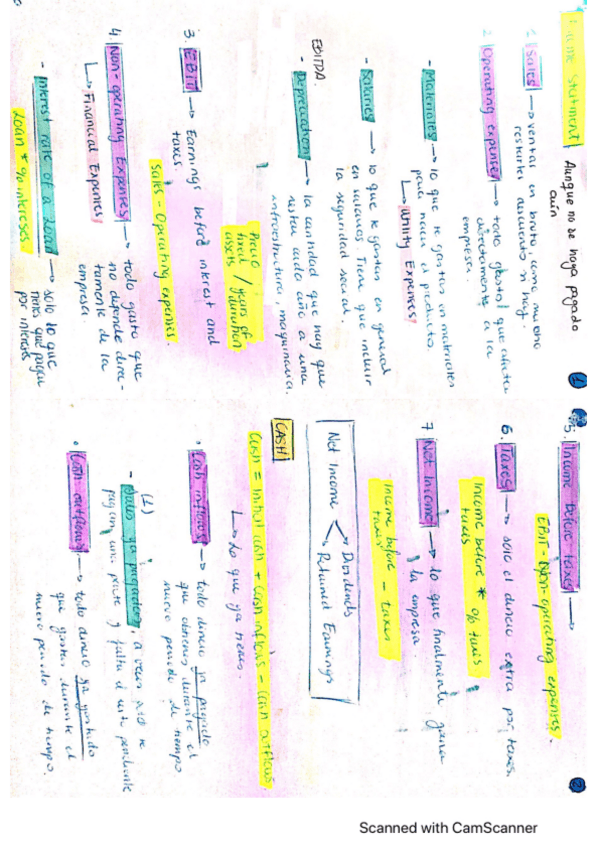 Income Statement Aunque no se haya pagado
aún
1. Sales → ventas en bruto, como mucho
restarles descuentos si hay.
2. Operating expenses → todo gasto que afecta
directamente a la
empresa.
- Materiales → lo que te gastas en materiales
para hacer el producto.
↳ Utility Expenses
- Salaries → lo que te gastas en general
en salarios. Tiene que incluir
la seguridad social.
EBITDA.
- Depreciation → la cantidad que hay que
restar cada año a una
infraestructura, maquinaria.
Precio
fixed / years of
assets
3. EBIT → Earnings before interest and
taxes.
Sales - Operating expenses.
4. Non-operating Expenses → todo gasto que
↳ Financial Expenses no depende direc-
tamente de la
empresa.
- Interest rate of a loan → solo lo que
Loan * % intereses. tienes que pagar
por interés
1
5. Income Before taxes →
EBIT - Non-operating expenses.
6. Taxes → solo el dinero extra por taxes.
Income before * % taxes
taxes
7 Net Income → lo que finalmente gana
la empresa.
Income before - taxes
taxes
Net Income → Dividends
→ Retained Earnings
CASH
Cash = Initial cash + Cash inflows - Cash outflows.
↳ Lo que ya tienes.
• Cash inflows → todo dinero ya pagado
que obtienes durante el
nuevo periodo de tiempo
- ya pagados, a veces solo te
pagan una parte y falta el resto pendiente
• Cash outflows → todo dinero ya gastado
que gastas durante el
nuevo periodo de tiempo.
2
Scanned with CamScanner